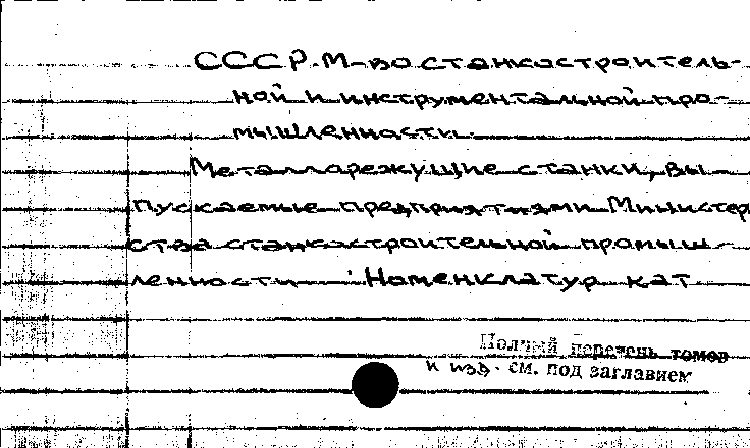 СССР. М-во станкостроитель-
ной и инструментальной про-
мышленности.
Металлорежущие станки, вы-
пускаемые предприятиями Министер
ства станкостроительной промыш-
ленности : Номенклатур кат
Полный перечень томов
и изд. см. под заглавием